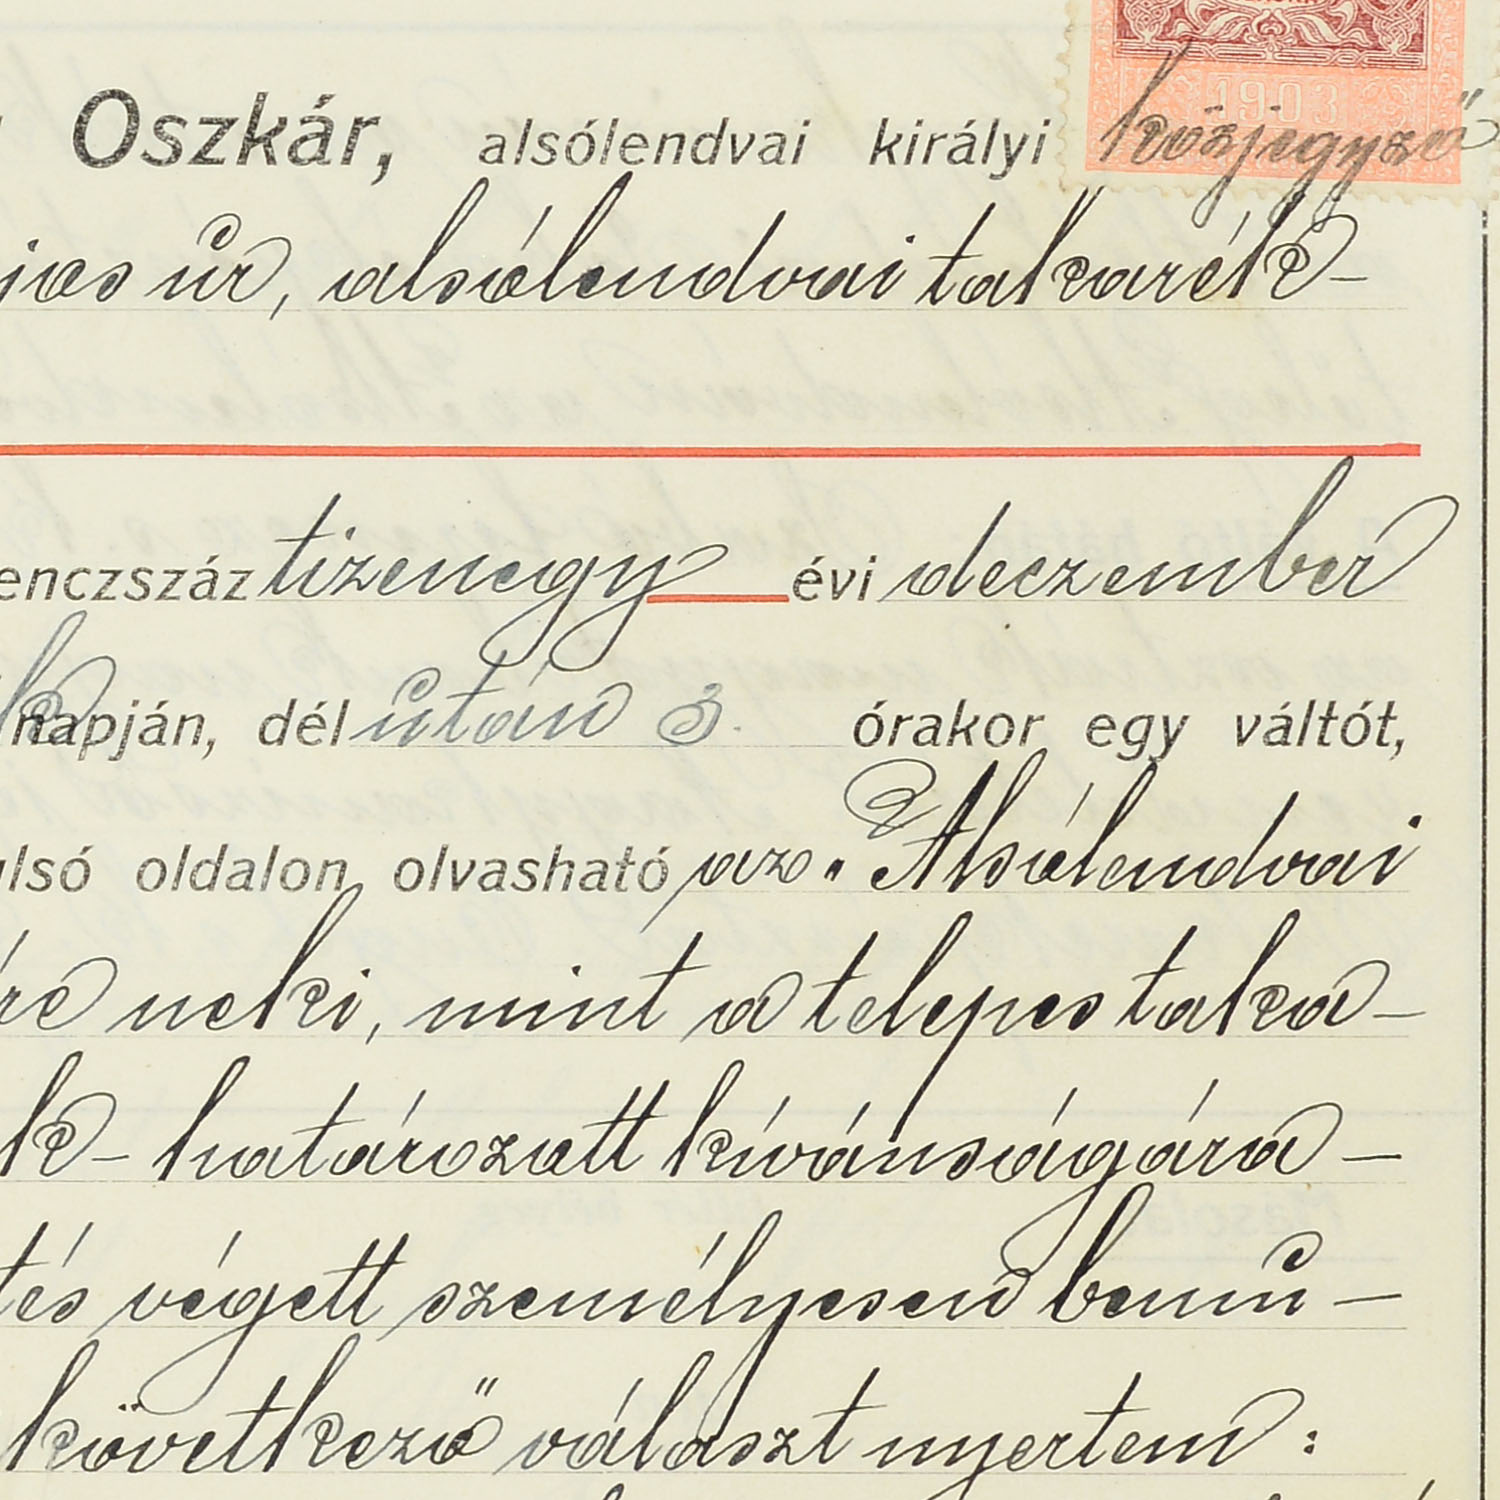 Oszkár, alsólendvai királyi közjegyző
1903
jas úr, alsólendvai takarék-
enczszáz tizenegy évi deczember
napján, dél után 3. órakor egy váltót,
ulsó oldalon olvasható az „Alsólendvai
re neki, mint a telepes taka-
k - határozott kívánságára -
tés végett személyesen bemu -
következő választ nyertem :